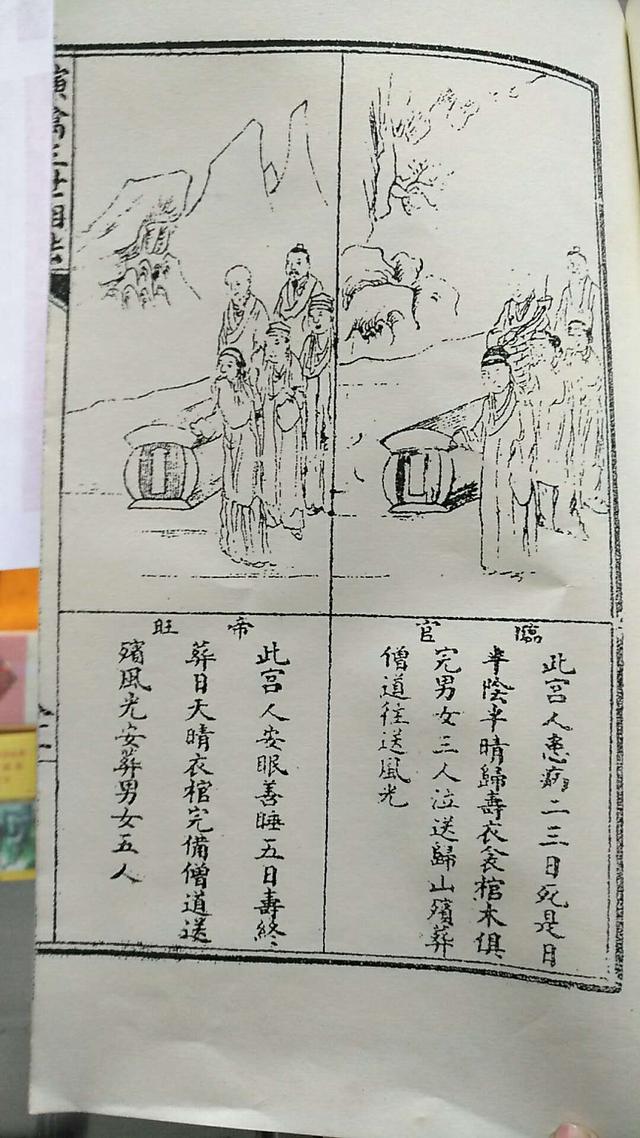 演禽三世相法
臨官
此宮人患病二三日死是日
半陰半晴歸壽衣衾棺木俱
完男女三人泣送歸山殯葬
僧道往送風光
帝旺
此宮人安眠善睡五日壽終
葬日天晴衣棺完備僧道送
殯風光安葬男女五人